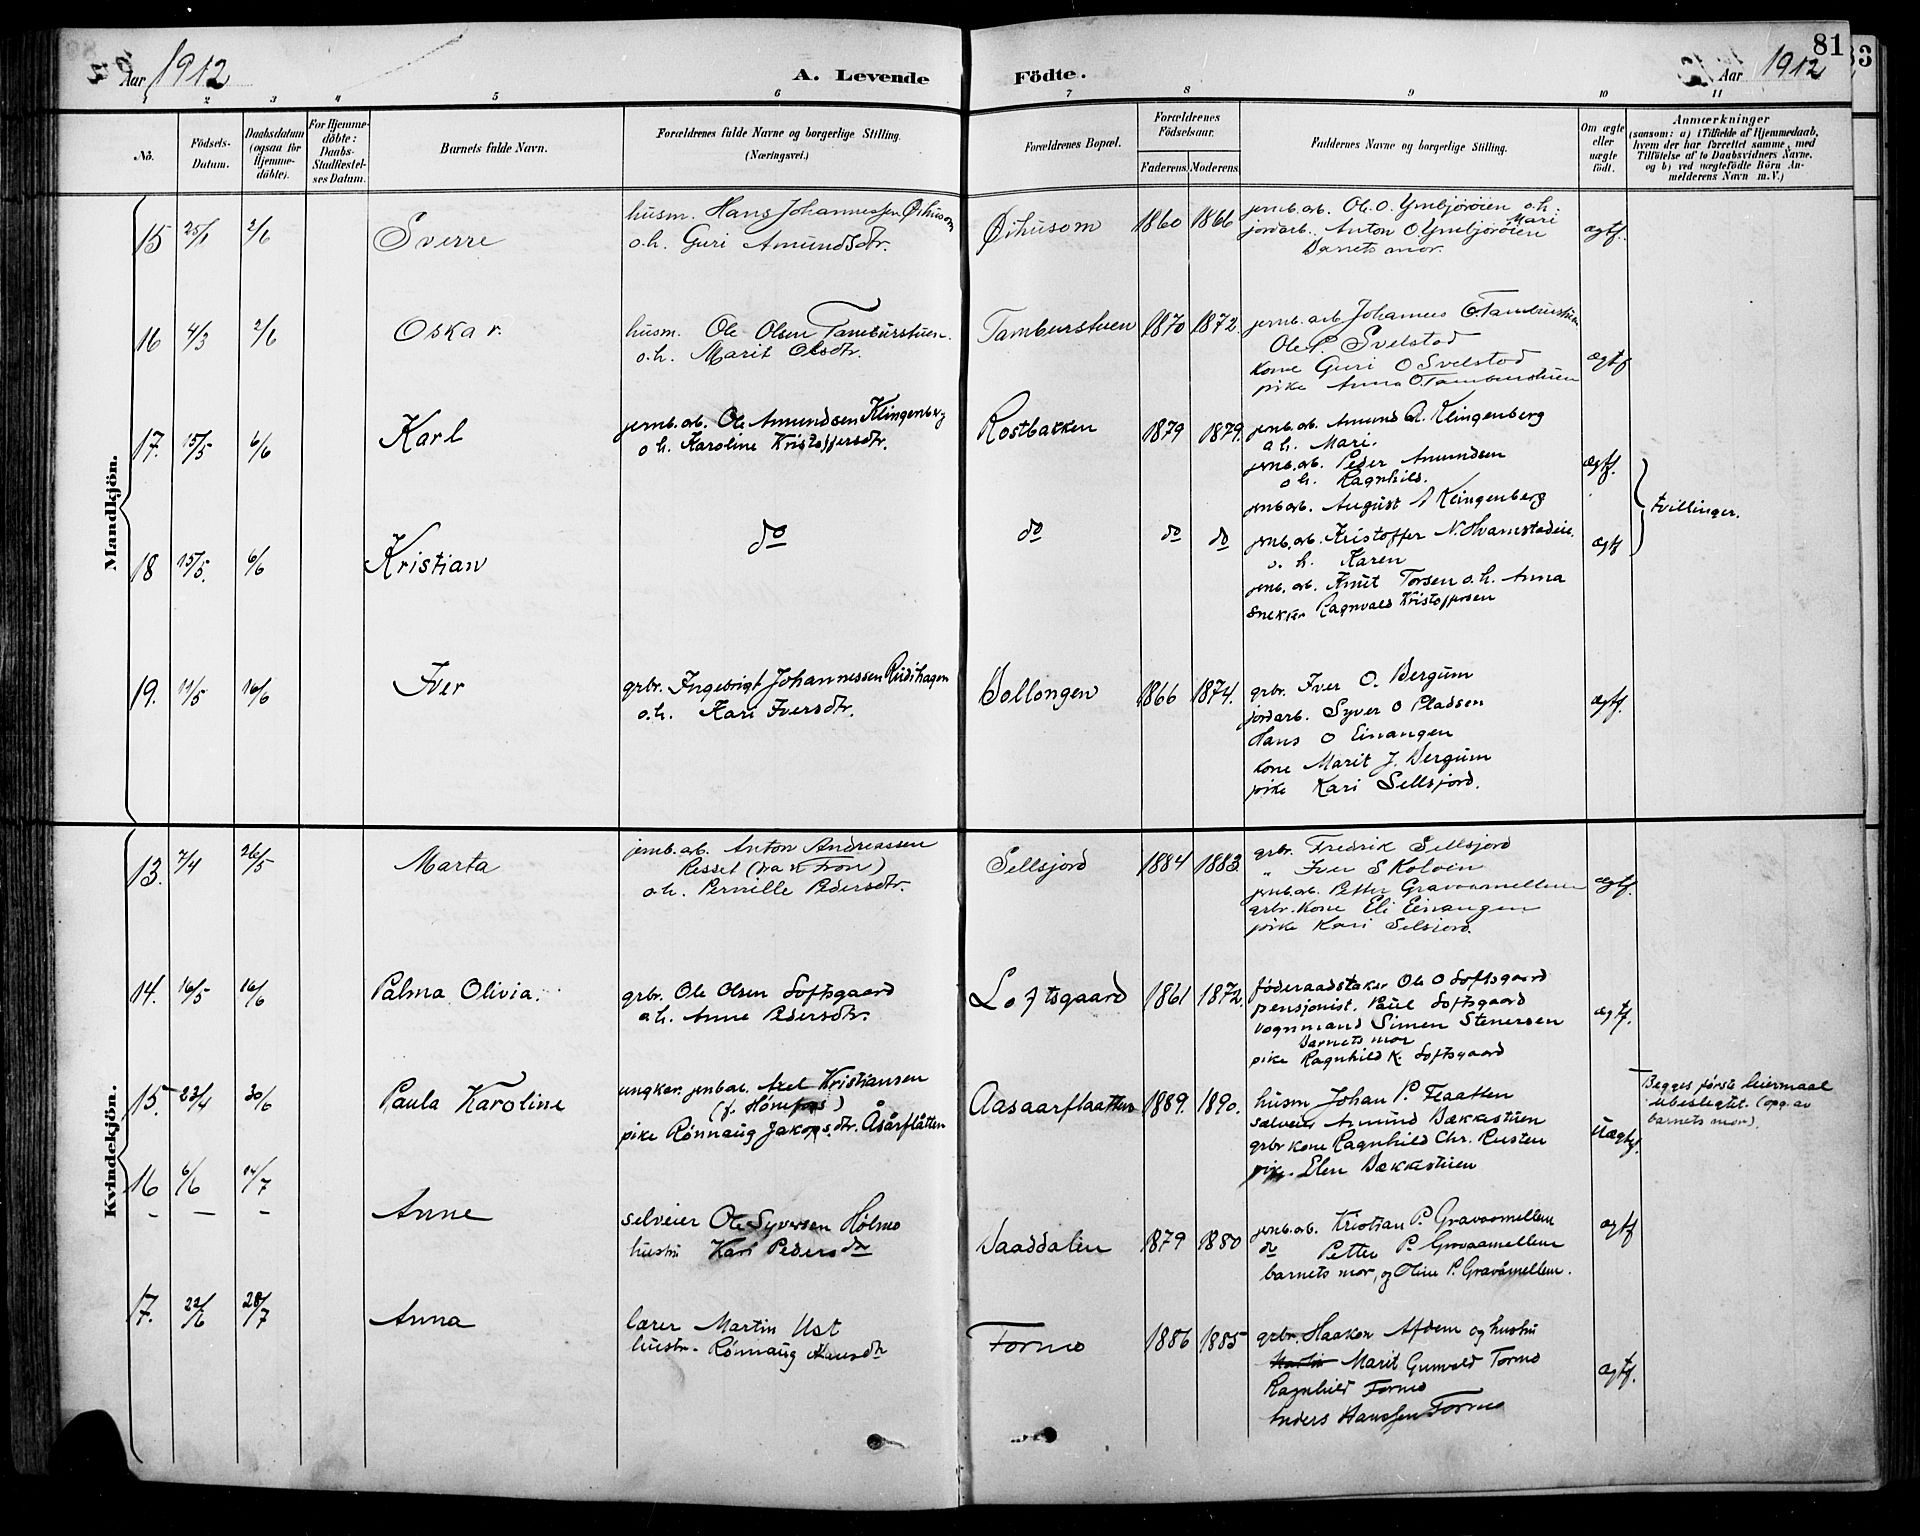 81
Aar 1912
A. Levende Fødte.
Aar 1912
1 2 3 4 5 6 7 8 9 10 11
No.
Fødsels-Datum.
Daabsdatum (ogsaa for Hjemme-døbte).
For Hjemme-døbte: Daabs-Stadfæstel-ses Datum.
Barnets fulde Navn.
Forældrenes fulde Navne og borgerlige Stilling.
(Næringsvei.)
Forældrenes Bopæl.
Forældrenes Fødselsaar.
Faderens. Moderens.
Faddernes Navne og borgerlige Stilling.
Om ægte eller uægte født.
Anmærkninger
(saasom: a) i Tilfælde af Hjemmedaab, hvem der har forrettet samme, med Tilføielse af to Daabsvidners Navne, og b) ved uægtefødte Børn An-melderens Navn m. V.)
Mandkjön.
15 2/6 Sverre
husm. Hans Johannessen Øihusom
o.h. Guri Amundsdtr.
Øihusom 1860 1866
jernb.arb. Ole O. Ymbjøróien o.h. Mari
jordarb. Anton O. Ymbjøróien
Barnets mor.
ægtf.
16 4/3 2/6 Oskar.
husm. Ole Olsen Tamburstuen.
o.h. Marit Olsdtr.
Tamburstuen 1870 1872.
jernb.arb Johannes O. Tamburstuen
Ole P. Svelstad
kone Guri O Svelstad
pike Anna O. Tamburstuen
ægtf
17. 15/5 6/6 Karl
jernb.arb. Ole Amundsen Klingenberg
o h. Karoline Kristoffersdtr.
Rostbakken 1879 1879.
jernb.arb. Amund A. Klingenberg
o h. Mari.
jernb.arb. Peder Amundsen
o h. Ragnhild.
jernb.arb. August A Klingenberg
ægtf.
tvillinger.
18 15/5. 6/6 Kristian
do do do do
jernb.arb. Kristoffer N. Hvamstadeie
o. h. Karen
jernb.arb. Knut Torsen o.h. Anna
snekker Ragnvald Kristoffersen
ægtf
19. 11/5 16/6 Iver
grbr. Ingebrigt Johannessen Rudihagen
o.h. Kari Iversdtr.
Vollongen 1866 1874.
grbr. Iver O. Bergum
jordarb. Syver O Pladsen
Hans O Einangen
kone Marit J. Bergum
pike Kari Sellsjord.
ægtf.
Kvindekjön.
13. 7/4 26/5 Marta
jernb.arb. Anton Andreassen
Resset (fra N Fron)
o.h. Pernille Pedersdtr.
Sellsjord 1884 1883.
grbr. Fredrik Sellsjord
" Iver S Kolvin
jernb.arb. Petter Gravaamellem
grbr. kone Eli Einangen
pike Kari Selsjord.
ægtf.
14. 16/5 16/6 Palma Olivia.
grbr. Ole Olsen Loftsgaard
o h. Anne Pedersdtr.
Loftsgaard 1861 1872.
føderaadstaker Ole O Loftsgaard
pensjonist. Paul Loftsgaard
vognmand Simen Stenersen
Barnets mor
pike Ragnhild K. Loftsgaard
ægtf.
15. 23/4 30/6 Paula Karoline
ungkar. jernb.arb. Axel Kristiansen
(f. Hønefos)
pike Rønnaug Jakopsdtr. Åsårflåtten
Aasaarflaatten 1889. 1890.
husm Johan P. Flaatten
selveier Amund Bækkestuen
grbr kone Ragnhild Chr. Rusten
pike. Elen Bækkestuen
uægtf.
Begges første leiermaal
ubeslegtet. (opg. av
barnets mor).
16 6/6 14/7 Anne
selveier Ole Syversen Hølmo
hustru Kari Pedersdtr
Baaddalen 1879 1880
jernb.arb. Kristian P. Gravaamellem
do Petter P. Gravaamellem
barnets mor, og Oline P. Gravåmellem.
ægtf
17. 22/6 28/7 Anna
lærer Martin Ust
hustr. Rønnaug Hansdtr
Formo 1886 1885
grbr. Haakon Afdem og hustru
Marit Gunvald Formo
Ragnhild Formo
Anders Hanssen Formo
ægtf.